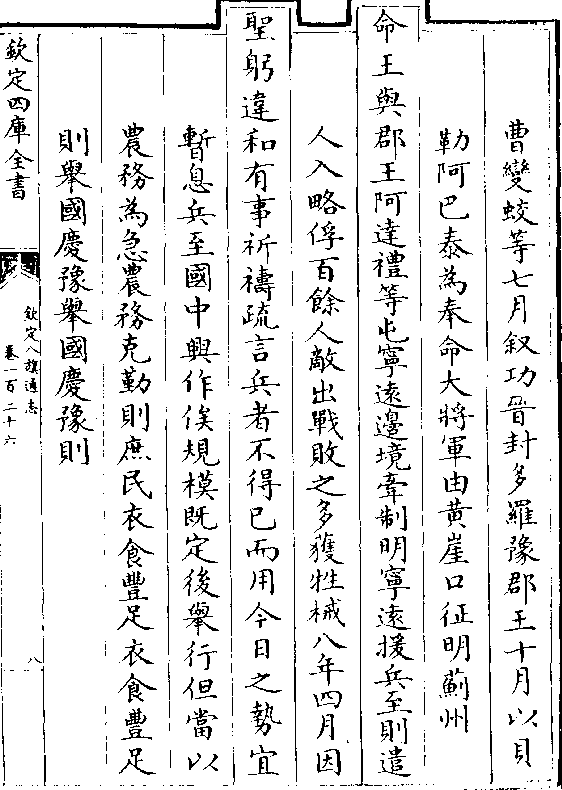 曹變蛟等七月叙功晉封多羅豫郡王十月以貝
勒阿巴泰為奉命大將軍由黄崖口征明薊州
命王與郡王阿達禮等屯寧遠邊境牽制明寧遠援兵至則遣
人入略俘百餘人敵出戰敗之多獲牲械八年四月因
聖躬違和有事祈禱疏言兵者不得已而用今日之勢宜
暫息兵至國中興作俟規模既定後舉行但當以
農務為急農務克勤則庶民衣食豐足衣食豐足
則舉國慶豫舉國慶豫則
欽定四庫全書
欽定八旗通志
卷一百二十六
八